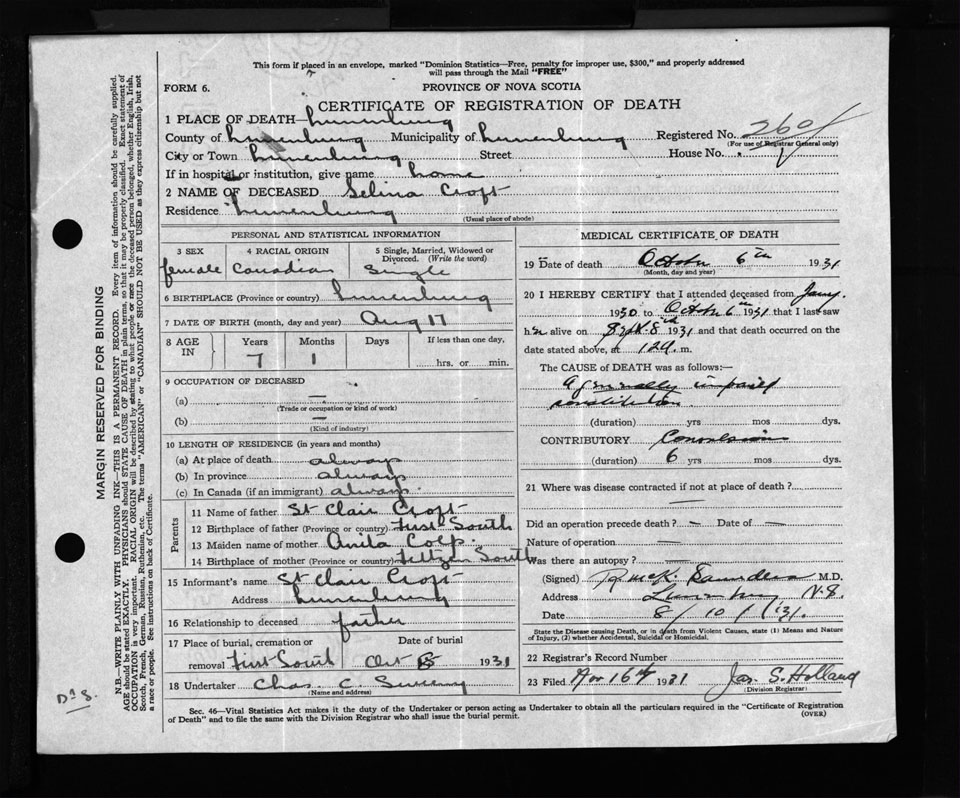 This form if placed in an envelope, marked "Dominion Statistics—Free, penalty for improper use, $300," and properly addressed
will pass through the Mail "FREE"
FORM 6.
PROVINCE OF NOVA SCOTIA
CERTIFICATE OF REGISTRATION OF DEATH
1 PLACE OF DEATH— Lunenburg
County of Lunenburg Municipality of Lunenburg Registered No. 2601
(For use of Registrar General only)
City or Town Lunenburg Street House No.
If in hospital or institution, give name home
2 NAME OF DECEASED Selina Croft
Residence Lunenburg
(Usual place of abode)
PERSONAL AND STATISTICAL INFORMATION
3 SEX 4 RACIAL ORIGIN 5 Single, Married, Widowed or Divorced. (Write the word)
female Canadian Single
6 BIRTHPLACE (Province or country) Lunenburg
7 DATE OF BIRTH (month, day and year) Aug 17
8 AGE IN Years Months Days If less than one day,
7 1 hrs. or min.
9 OCCUPATION OF DECEASED
(a) —
(Trade or occupation or kind of work)
(b) —
(Kind of industry)
10 LENGTH OF RESIDENCE (in years and months)
(a) At place of death always
(b) In province always
(c) In Canada (if an immigrant) always
Parents
11 Name of father St Clair Croft
12 Birthplace of father (Province or country) First South
13 Maiden name of mother Anita Colp.
14 Birthplace of mother (Province or country) Feltzen South
15 Informant's name St Clair Croft
Address Lunenburg
16 Relationship to deceased father
17 Place of burial, cremation or Date of burial
removal First South Oct 8 1931
18 Undertaker Chas. C. Sweeny
(Name and address)
MEDICAL CERTIFICATE OF DEATH
19 Date of death October 6th 1931
(Month, day and year)
20 I HEREBY CERTIFY that I attended deceased from Jany.
1930 to October 6th 1931 that I last saw
her alive on Sept. 8th 1931 and that death occurred on the
date stated above, at 12 a. m.
The CAUSE of DEATH was as follows:—
A generally impaired
constitution
(duration) yrs mos dys.
CONTRIBUTORY Convulsions
(duration) 6 yrs mos. dys.
21 Where was disease contracted if not at place of death?
—
Did an operation precede death? — Date of —
Nature of operation —
Was there an autopsy? —
(Signed) R. McK. Saunders M.D.
Address Lunenburg N.S.
Date 8/10/31.
State the Disease causing Death, or in death from Violent Causes, state (1) Means and Nature
of Injury, (2) whether Accidental, Suicidal or Homicidal.
22 Registrar's Record Number
23 Filed Nov 16th 1931 Jas. S. Holland
(Division Registrar)
Sec. 46—Vital Statistics Act makes it the duty of the Undertaker or person acting as Undertaker to obtain all the particulars required in the "Certificate of Registration
of Death" and to file the same with the Division Registrar who shall issue the burial permit. (OVER)
MARGIN RESERVED FOR BINDING
N.B.—WRITE PLAINLY WITH UNFADING INK—THIS IS A PERMANENT RECORD. Every item of information should be carefully supplied.
AGE should be stated EXACTLY. PHYSICIANS should STATE CAUSE OF DEATH in plain terms, so that it may be properly classified. Exact statement of
OCCUPATION is very important. RACIAL ORIGIN will be described by stating to what people or race the deceased person belonged, whether English, Irish,
Scotch, French, German, Russian, Ruthenian, etc. The terms "AMERICAN" or "CANADIAN" SHOULD NOT BE USED as they express citizenship but not
a race or people. See instructions on back of Certificate.